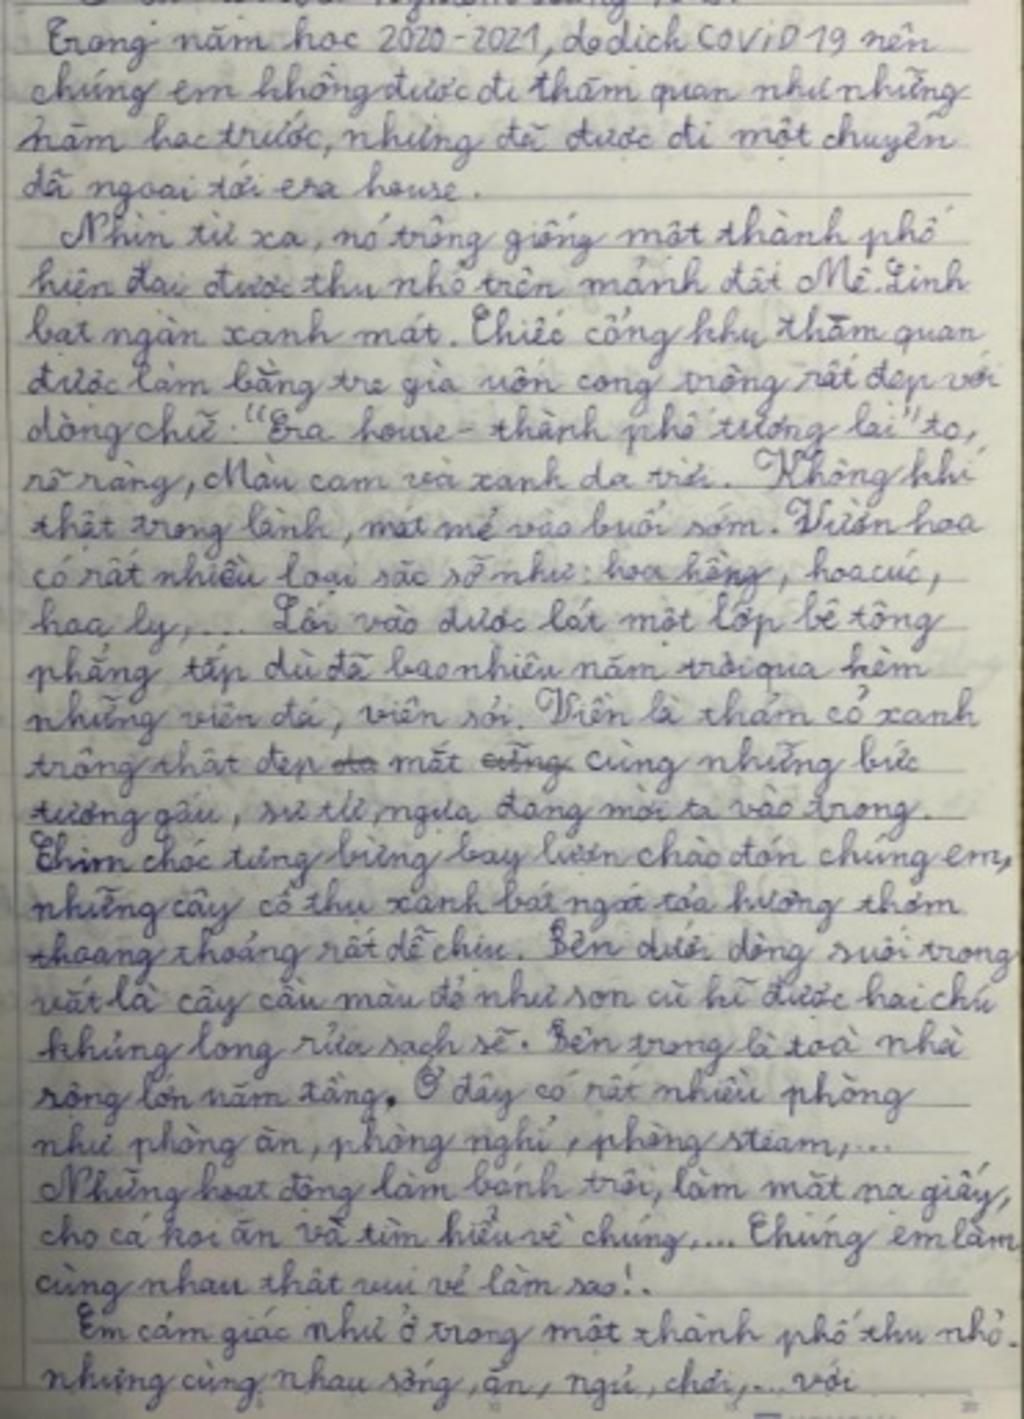 Trong năm học 2020-2021, do dịch COVID 19 nên
chúng em không được đi thăm quan như những
năm học trước, nhưng đã được đi một chuyến
dã ngoại tới era house.
Nhìn từ xa, nó trông giống một thành phố
hiện đại được thu nhỏ trên mảnh đất Mê Linh
bạt ngàn xanh mát. Chiếc cổng khu thăm quan
được làm bằng tre già uốn cong trông rất đẹp với
dòng chữ "Era house - thành phố tương lai" to,
rõ ràng, Màu cam và xanh da trời. Không khí
thật trong lành, mát mẻ vào buổi sớm. Vườn hoa
có rất nhiều loại sặc sỡ như: hoa hồng, hoa cúc,
hoa ly,... Lối vào được lát một lớp bê tông
phẳng tắp dù đã bao nhiêu năm trời qua kèm
những viên đá, viên sỏi. Viền là thảm cỏ xanh
trông thật đẹp mắt cùng những bức
tượng gấu, sư tử, ngựa đang mời ta vào trong.
Chim chóc tưng bừng bay lượn chào đón chúng em,
những cây cổ thụ xanh bát ngát tỏa hương thơm
thoang thoảng rất dễ chịu. Bên dưới dòng suối trong
vắt là cây cầu màu đỏ như son cũ kĩ được hai chú
khủng long rửa sạch sẽ. Bên trong là toà nhà
rộng lớn năm tầng. Ở đây có rất nhiều phòng
như phòng ăn, phòng nghỉ, phòng steam,...
Những hoạt động làm bánh trôi, làm mặt nạ giấy,
cho cá koi ăn và tìm hiểu về chúng,... Chúng em làm
cùng nhau thật vui vẻ làm sao!.
Em cảm giác như ở trong một thành phố thu nhỏ.
nhưng cùng nhau sống, ăn, ngủ, chơi,... với